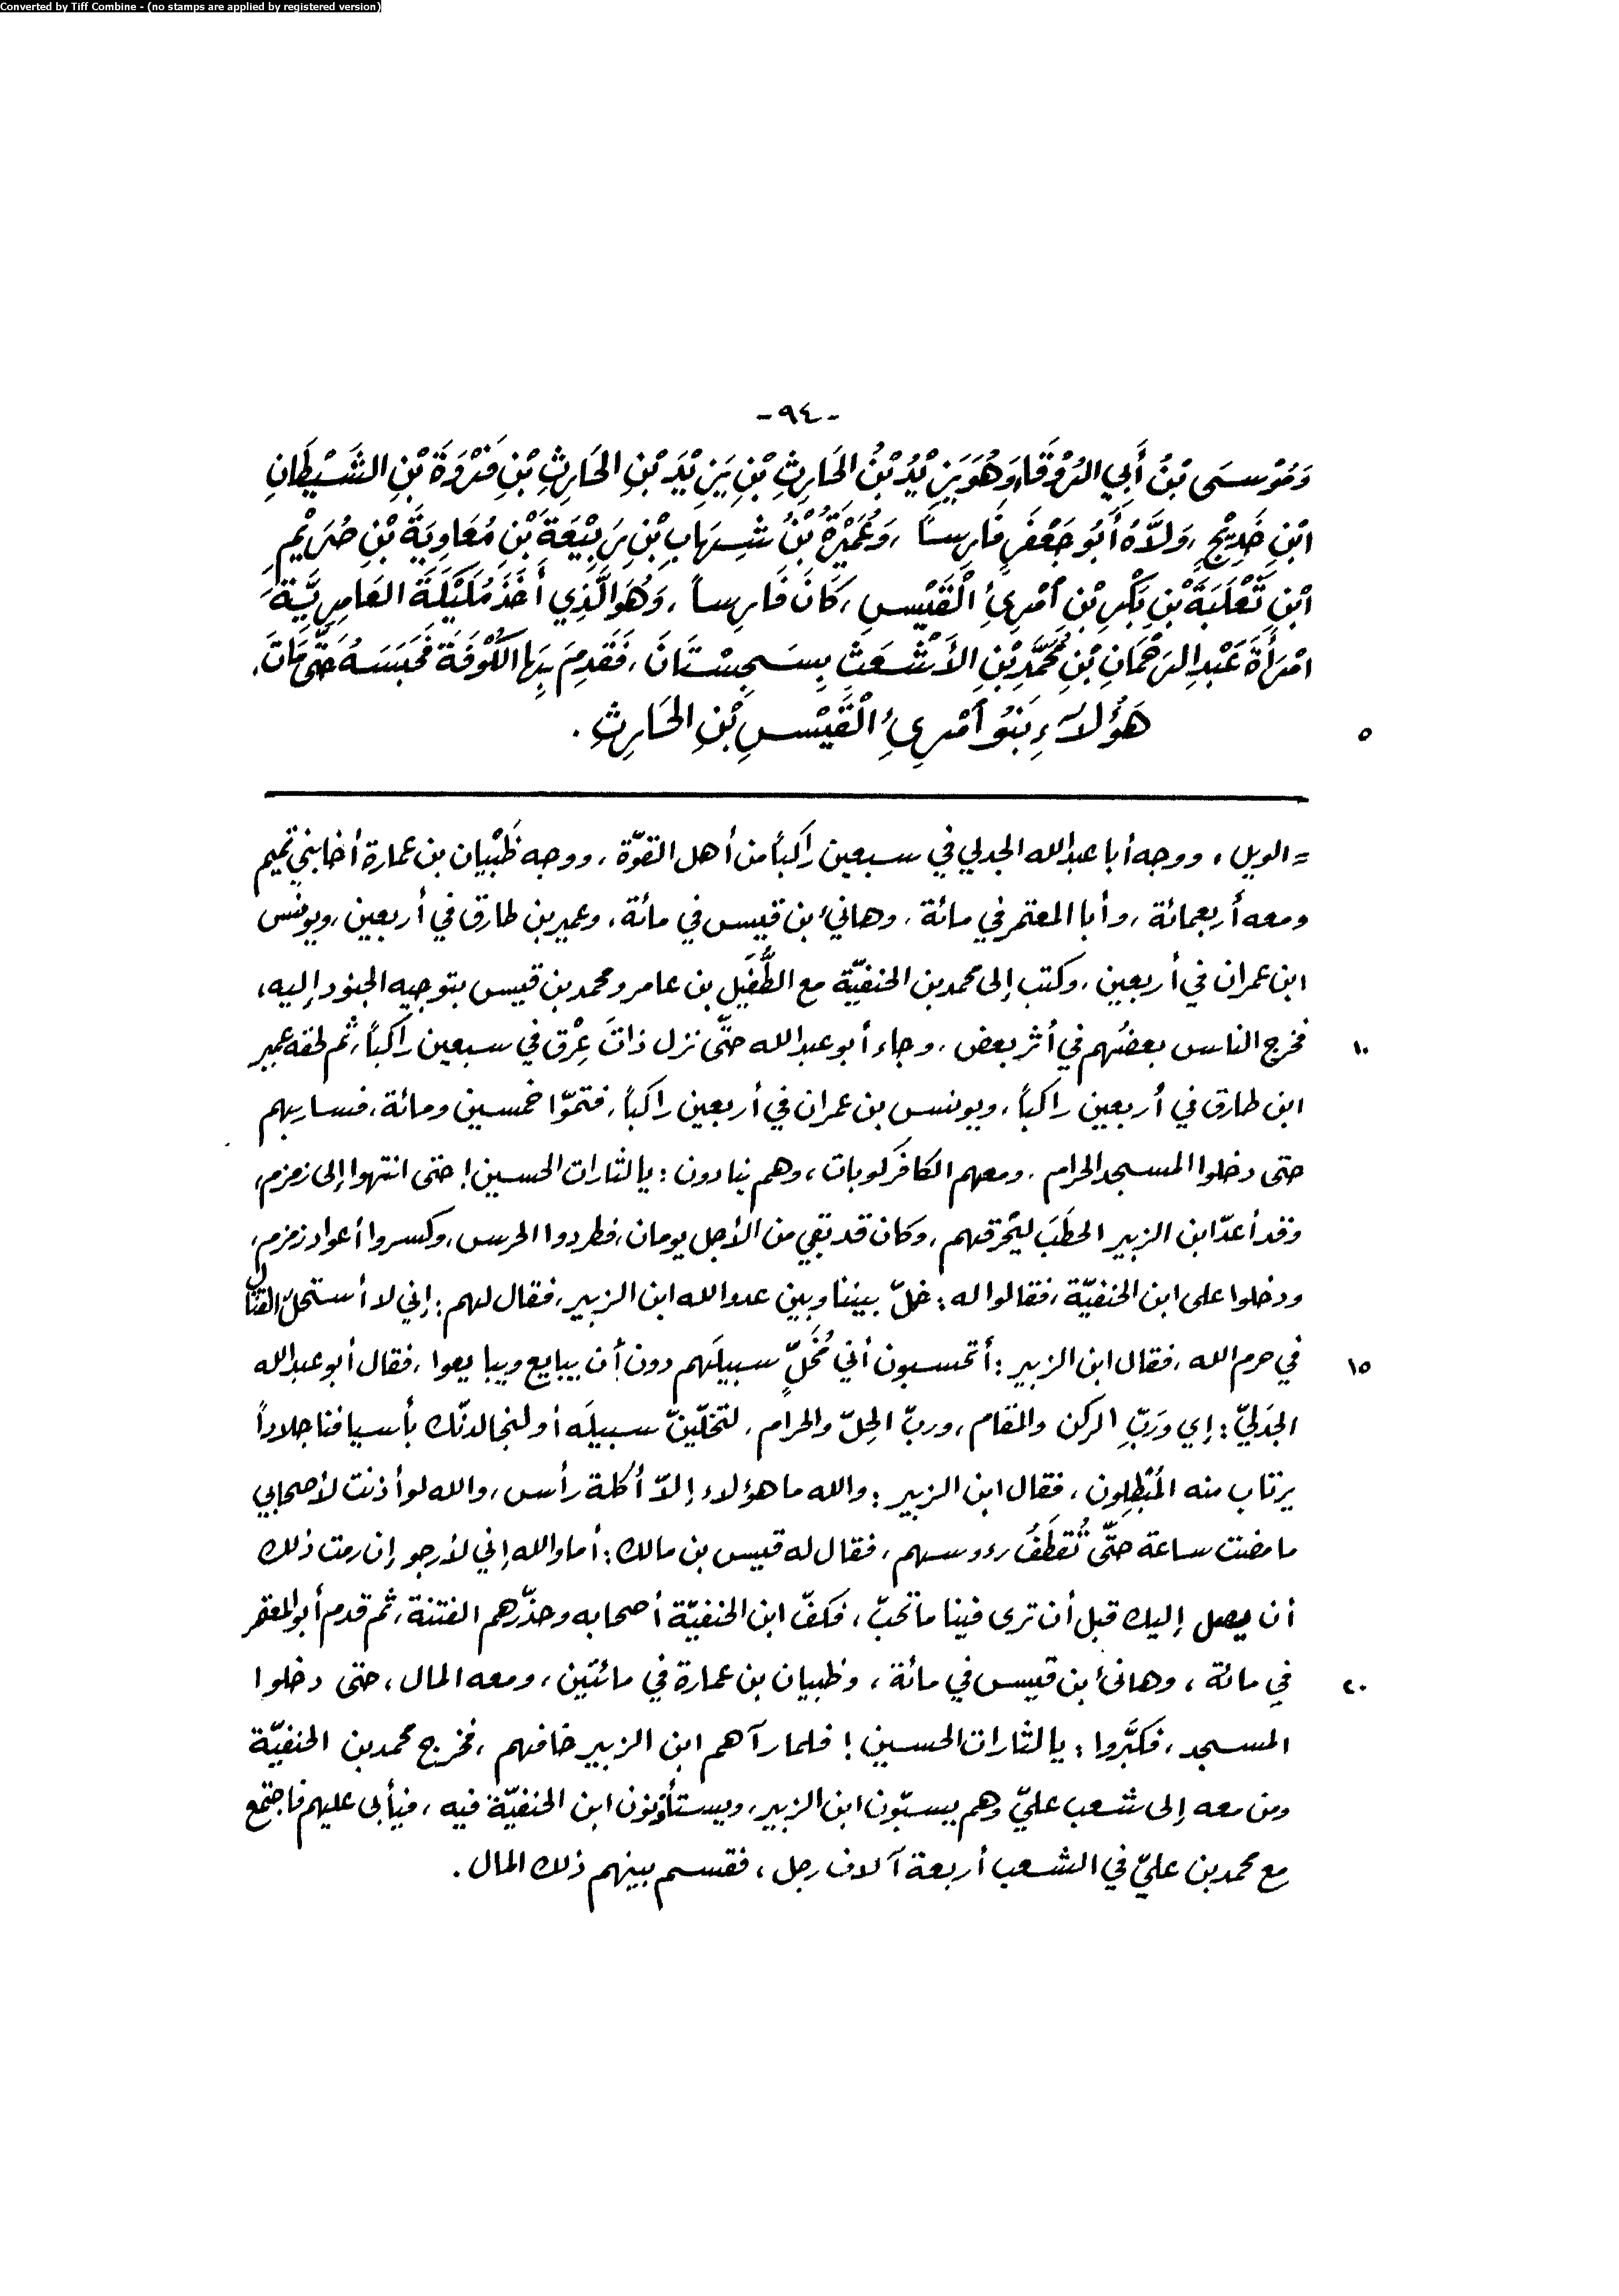 Converted by Tiff Combine - (no stamps are applied by registered version)
-٩٤-
وَمُوْسَى بْنُ أَبِي الرَّوْقَاءِ وَهُوَ يَزِيْدُ بْنُ الحَارِثِ بْنِ يَزِيْدَ بْنِ الحَارِثِ بْنِ فَرْوَةَ بْنِ الشَّيْطَانِ
ابْنِ خَدِيْجٍ، وَلَّاهُ أَبُو جَعْفَرٍ فَارِسَاً، وَعُمَيْرَةُ بْنُ شِهَابِ بْنِ رَبِيْعَةَ بْنِ مُعَاوِيَةَ بْنِ صُرَيْمِ
ابْنِ ثَعْلَبَةَ بْنِ بَكْرِ بْنِ امْرِئِ الْقَيْسِ، كَانَ فَارِساً، وَهُوَ الَّذِي أَخَذَ مُلَيْلَةَ العَامِرِيَّةَ
امْرَأَةَ عَبْدِ الرَحْمَانِ بْنِ مُحَمَّدِ بْنِ الأَشْعَثِ بِسَجِسْتَانَ، فَقَدِمَ بِهَا الكُوْفَةَ فَحَبَسَهُ حَتَّى مَاتَ.
هَؤُلَاءِ بَنُو امْرِئِ الْقَيْسِ بْنِ الحَارِثِ. ٥
= الويل، ووجه أبا عبد الله الجدلي في سبعين راكباً من أهل القوّة، ووجه ظَبْيان بن عمارة أخا بني تميم
ومعه أربعمائة، وأبا المعتمر في مائة، وهانئ بن قيس في مائة، وعمير بن طارق في أربعين، ويونس
ابن عمران في أربعين، وكتب إلى محمد بن الحنفيّة مع الطُّفَيل بن عامر ومحمد بن قيس بتوجيه الجنود إليه،
فخرج الناس بعضُهم في أثر بعض، وجاء أبو عبد الله حتَّى نزل ذاتَ عِرْق في سبعين راكباً، ثم لحقه عمير ١٠
ابن طارق في أربعين راكباً، ويونس بن عمران في أربعين راكباً، فتمّوا خمسين ومائة، فسار بهم
حتى دخلوا المسجد الحرام، ومعهم الكافَركوبات، وهم ينادون: يا لثارات الحسين! حتى انتهوا إلى زمزم،
وقد أعدّ ابن الزبير الحطَبَ ليُحرقهم، وكان قد بقي من الأجل يومان، فطردوا الحرس، وكسروا أعواد زمزم،
ودخلوا على ابن الحنفيّة، فقالوا له: خلّ بيننا وبين عدو الله ابن الزبير، فقال لهم: إني لا أستحلّ القتال
في حرم الله، فقال ابن الزبير: أتحسبون أني مُخَلٍّ سبيلَهم دون أن يبايع ويبايعوا، فقال أبو عبد الله ١٥
الجَدَليّ: إي ورَبِّ الركن والمقام، وربّ الحِلّ والحرام، لتخلّينّ سبيلَه أو لنجالدنّك بأسيافنا جلاداً
يرتاب منه المُبْطِلون، فقال ابن الزبير: والله ما هؤلاء إلاّ أكلة رأس، والله لو أذنت لأصحابي
ما مضت ساعة حتَّى تُقطَفُ رءوسهم، فقال له قيس بن مالك: أما والله إني لأرجو إن رمت ذلك
أن يصل إليك قبل أن ترى فينا ما تحبّ، فكفّ ابن الحنفيّة أصحابه وحذّرهم الفتنة، ثم قدم أبو المعتمر
في مائة، وهانئ بن قيس في مائة، وظبيان بن عمارة في مائتين، ومعه المال، حتى دخلوا ٢٠
المسجد، فكبَّروا: يا لثارات الحسين! فلما رآهم ابن الزبير خافهم، فخرج محمد بن الحنفيّة
ومن معه إلى شعب عليّ وهم يسبّون ابن الزبير، ويستأذنون ابن الحنفيّة فيه، فيأبى عليهم فاجتمع
مع محمد بن عليّ في الشعب أربعة آلاف رجل، فقسم بينهم ذلك المال.